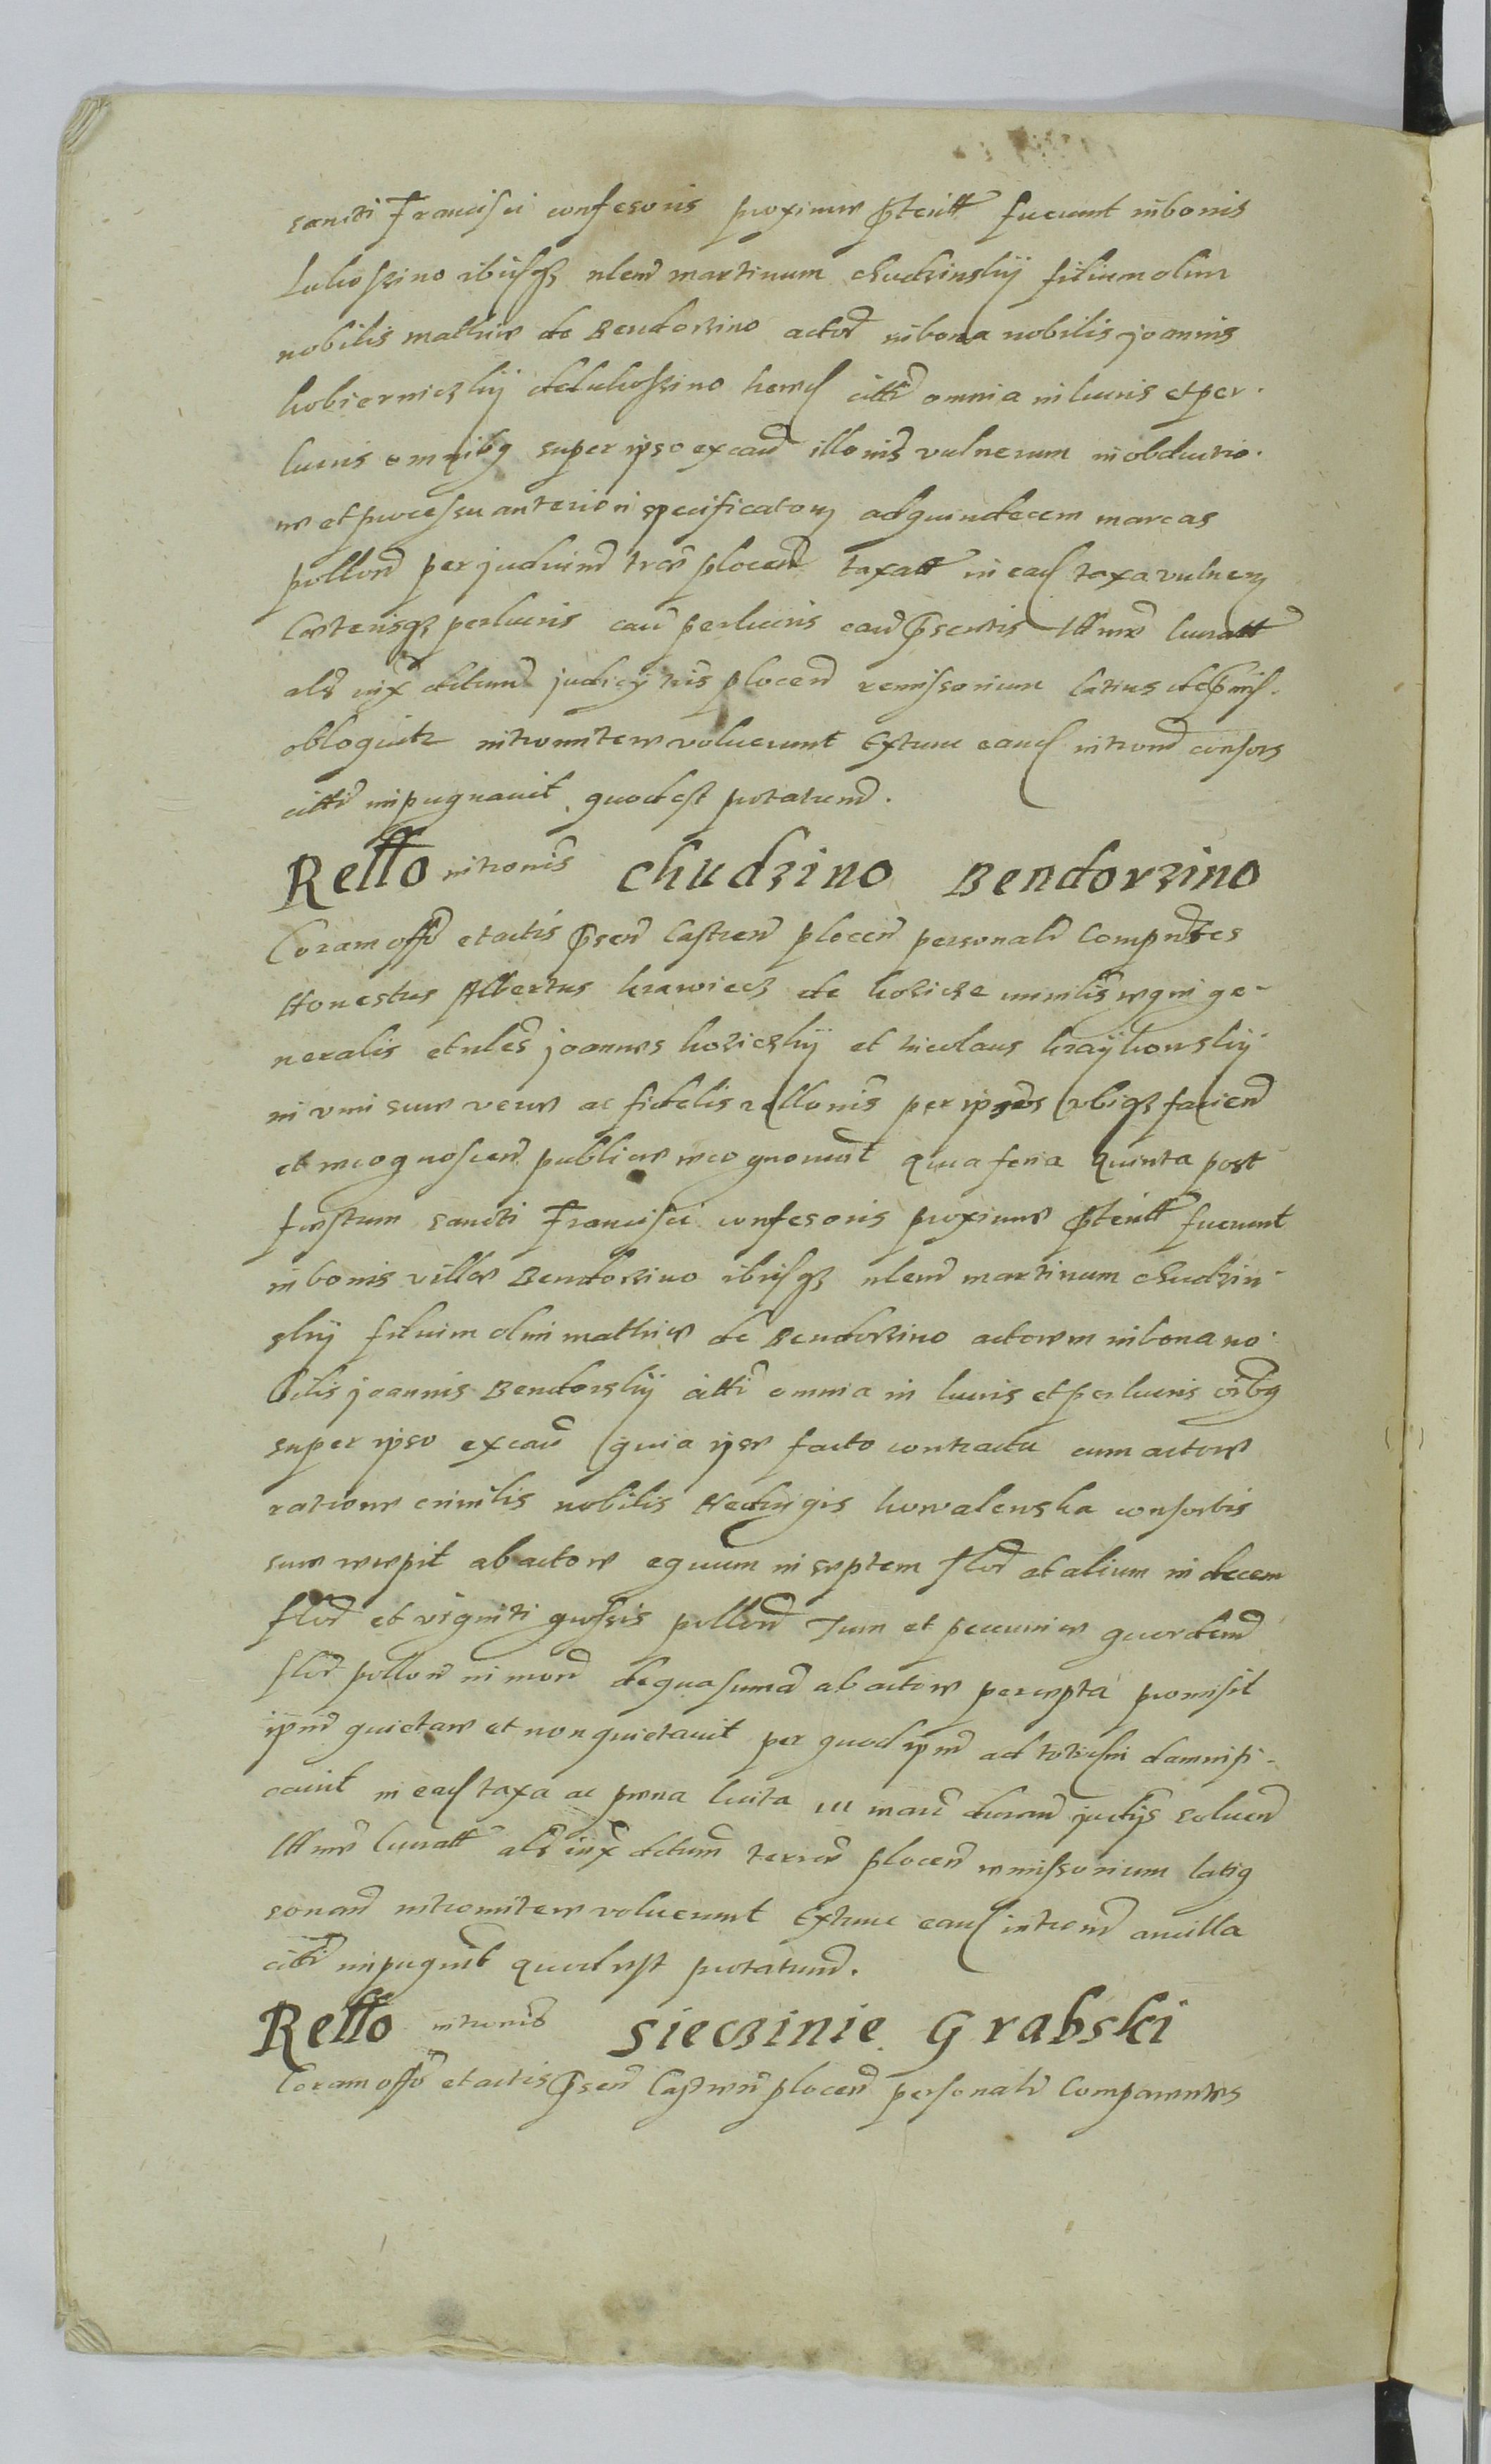 sancti Francisci confesoris proxime pterit fuerunt in bonis
Lukoszino ibiq nlem martinum chudzinskij filium olim
nobilis mathie de Bendorzino actor in bona nobilis joannis
kobiernickij de lukoszino hered citti omnia in lucris et per
lucris omnibq super ipso ex cau illonis vulnerum in obductio
ne et processu anteriori specificatorz ad quindecem marcas
pollon per judicium tre plocen taxatt in ead taxa vulnerz
Ceterisqz perlucris cau perlucris cau psentis luratt
als iux cictum judicij tris plocen remissorium latius de pmis
obloquitz intromitere voluerunt Extunc eand introm consors
citti inpugnavit quod est protatum.
Rello intronis chudzino Bendorzino
Coram offo et actis psen Castren plocen personalr Compntes
Honestus Albertus krawiecz de kozicze ministis regni ge-
neralis et nles joannes kozickij et nicolaus kraijkowskij
in vim sue vere ac fidelis rellonis per ipsos ubiqz faciend
et recognoscen publice recognoverut quia feria quinta post
festum sancti Francisci confesoris proxime pterit fuerunt
in bonis ville Bendorzino ibiq nlem martinum chudzin-
skij filium olim mathie de Bendorzino actorem in bona no
bilis joannis Bendorskij citti omnia in lucris et perlucris oibq
super ipso ex cau quia ipse facto contractu cum actore
ratione crinilis nobilis Hedvigis kowalewska consortis
sue recepit ab actore equum in septem flor et alium in decem
flor et viginti grossis pollon Tum et pecunie quordem
flor pollon in mon de qua suma ab actore percepta promisit
ipm quietare et non quietavit per quod ipm ad totidem damnifi-
cavit in ead taxa ac pena lucita III marc duran judijs soluen
luratt als iux dctum terre plocen remissorium latiq
sonan intromitere voluerunt Extunc eand introm ancilla
citti inpugnit quod est protatum.
Rello intronis Sieczinie Grabski
Coram offo et actis psen Castren plocen personalr Comparentes